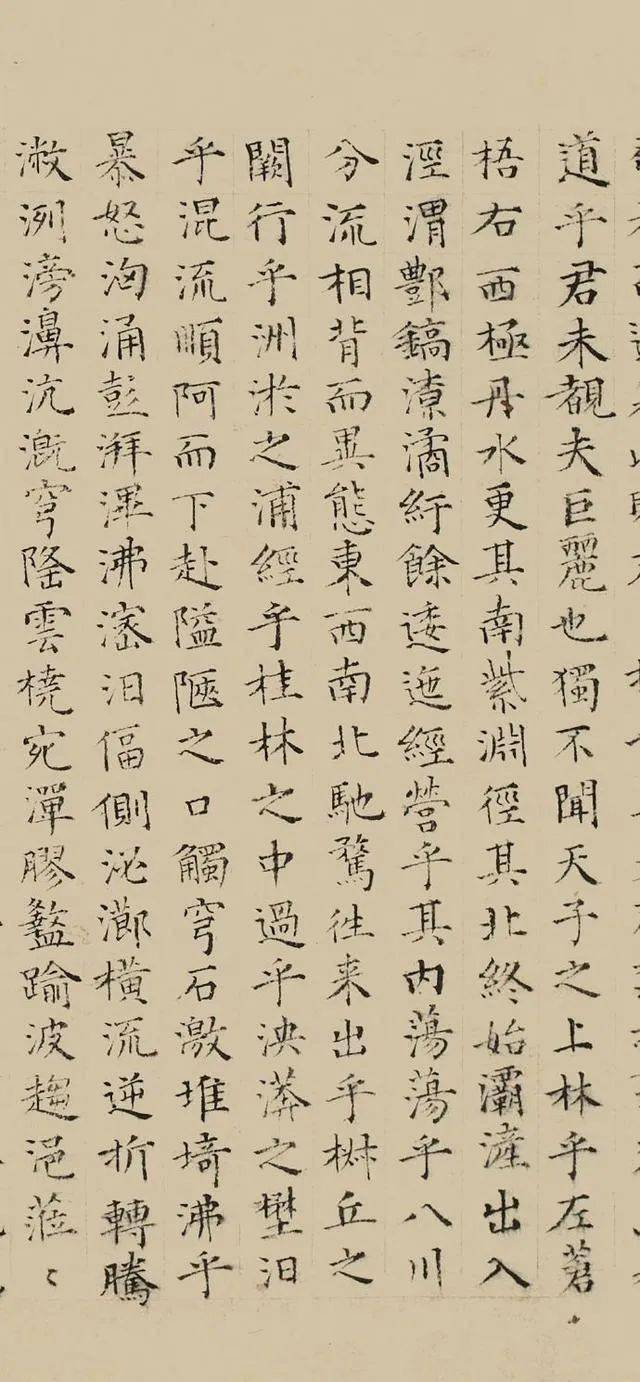 道乎君未覩夫巨麗也獨不聞天子之上林乎左蒼
梧右西極丹水更其南紫淵徑其北終始灞滻出入
涇渭酆鎬潦潏紆餘逶迤經營乎其内蕩蕩乎八川
分流相背而異態東西南北馳騖往来出乎椒丘之
闕行乎洲淤之浦經乎桂林之中過乎泱漭之壄汩
乎混流順阿而下赴隘陿之口觸穹石激堆埼沸乎
暴怒洶涌彭湃滭沸滵汩偪側泌瀄橫流逆折轉騰
潎洌滂濞沆溉穹隆雲橈宛潬膠盭踰波趨浥蒞〻